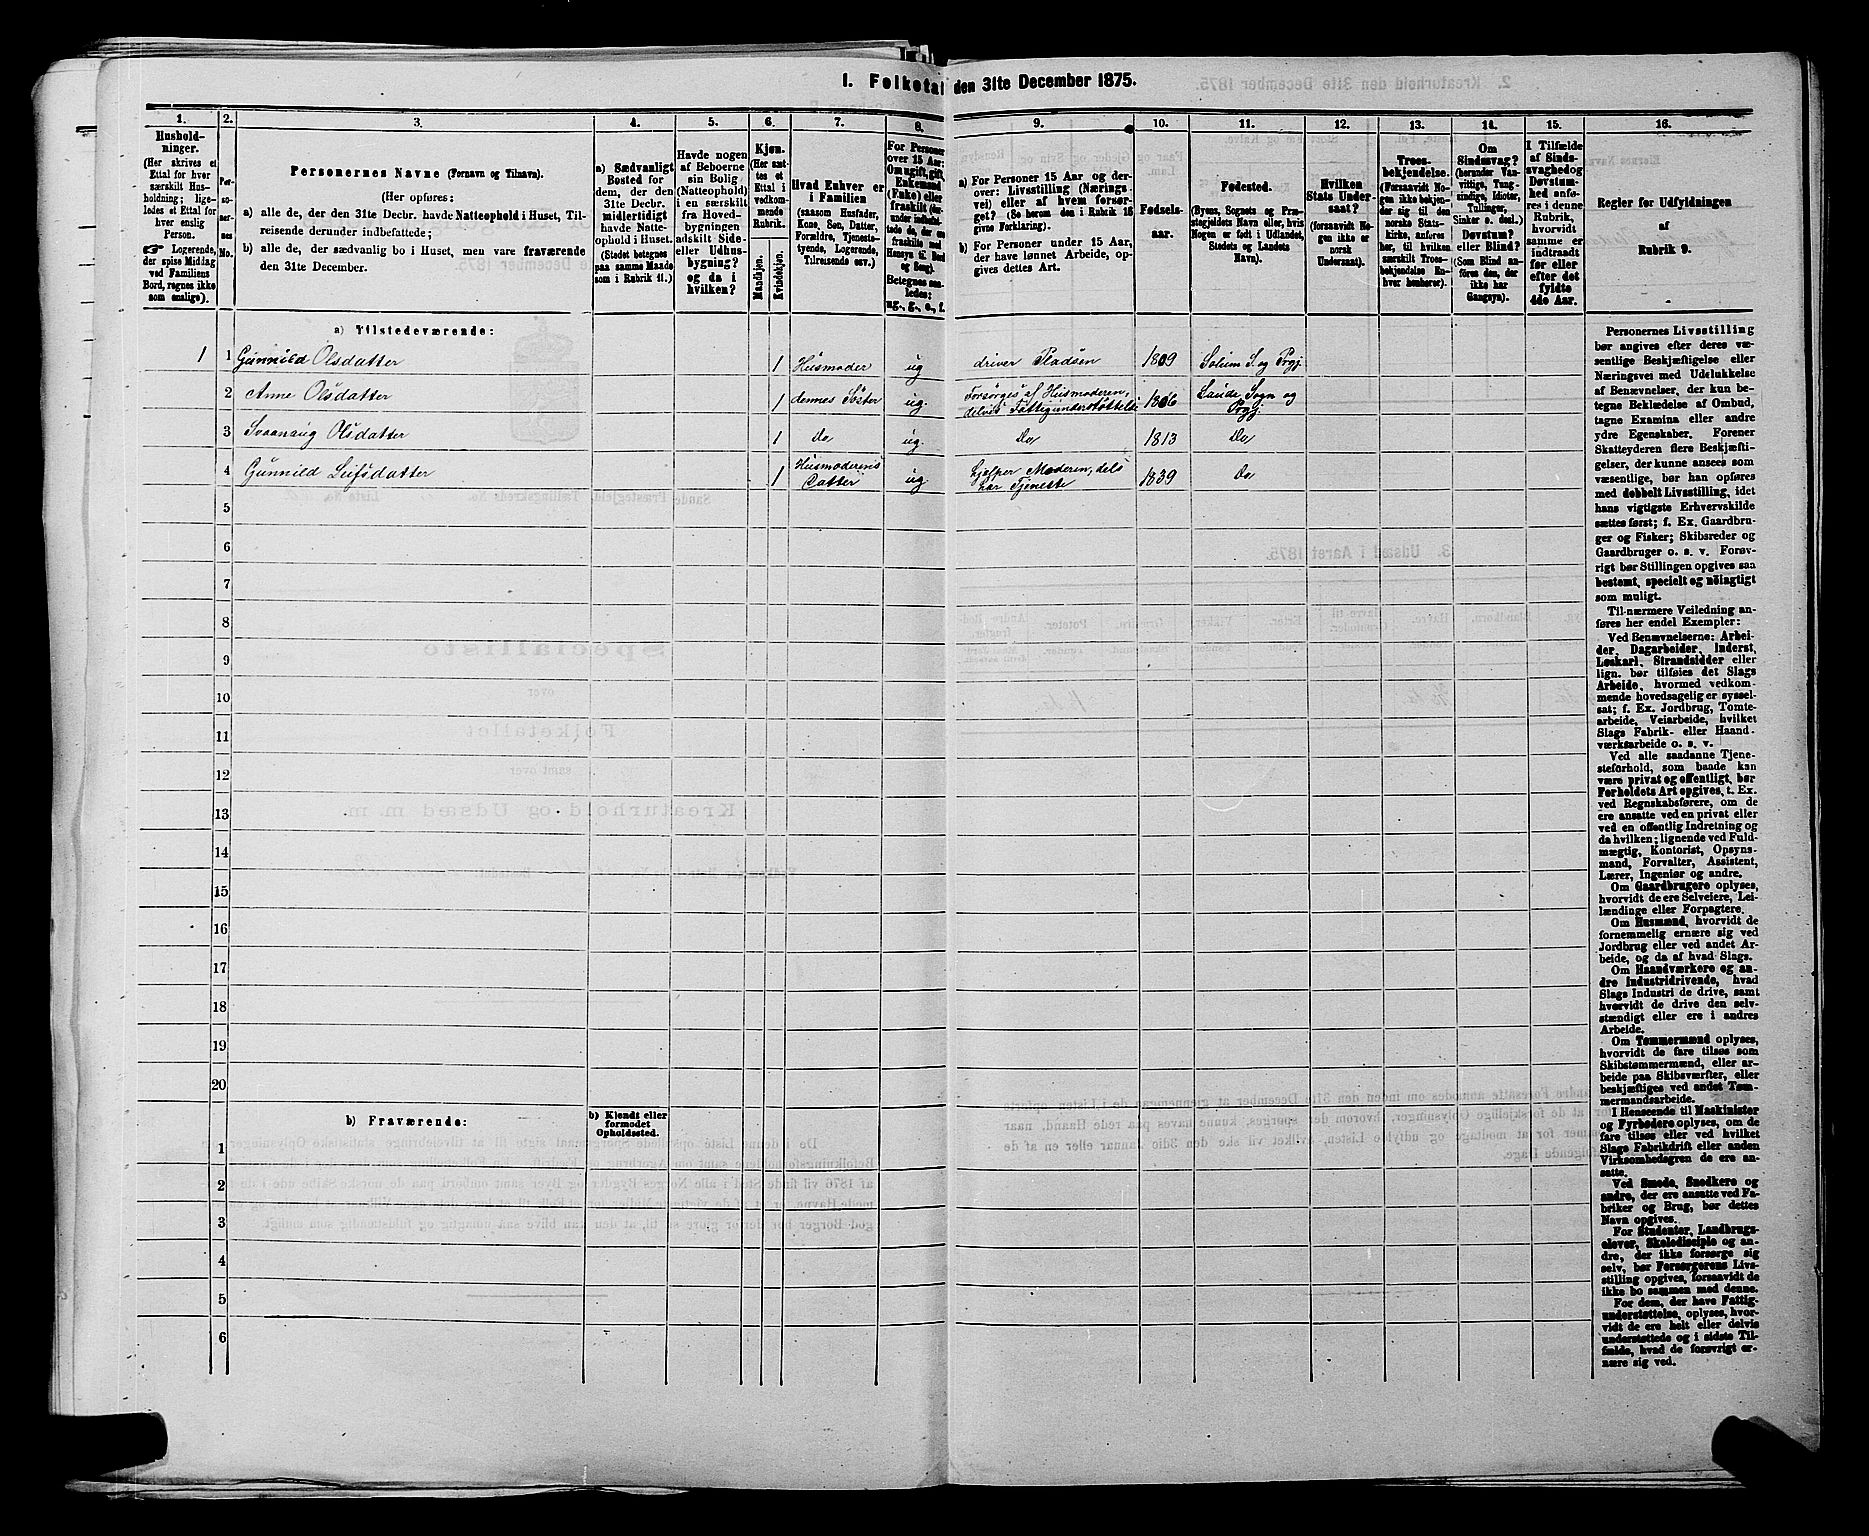 1. Folketal den 31te December 1875.
1.
Hushold-
ninger.
(Her skrives et
Ettal for hver
særskilt Hus-
holdning; lige-
ledes et Ettal for
hver enslig
Person.
Logerende,
der spise Middag
ved Familiens
Bord, regnes ikke
som enslige).
2.
Per-
so-
ner-
nes
No.
3.
Personernes Navne (Fornavn og Tilnavn).
(Her opføres:
a) alle de, der den 31te Decbr. havde Natteophold i Huset, Til-
reisende derunder indbefattede;
b) alle de, der sædvanlig bo i Huset, men vare fraværende
den 31te December.
4.
a) Sædvanligt
Bosted for
dem, der den
31te Decbr.
midlertidigt
havde Natte-
ophold i Huset.
(Stedet betegnes
paa samme Maade
som i Rubrik 11.)
5.
Havde nogen
af Beboerne
sin Bolig
(Natteophold)
i en særskilt
fra Hoved-
bygningen
adskilt Side-
eller Udhus-
bygning?
og da i
hvilken?
6.
Kjøn.
(Her sæt-
tes et
Ettal i
vedkom-
mende
Rubrik.
Mandkjøn.
Kvindekjøn.
7.
Hvad Enhver er
i Familien
(saasom Husfader,
Kone, Søn, Datter,
Forældre, Tjeneste-
tyende, Logerende,
Tilreisende osv.)
8.
For Personer
over 15 Aar:
Om ugift, gift,
Enkemand
(Enke) eller
fraskilt
Betegnes saa-
ledes:
ug., g., e., f.
9.
a) For Personer 15 Aar og der-
over: Livsstilling (Nærings-
vei) eller af hvem forsør-
get? (Se herom den i Rubrik 16
givne Forklaring).
b) For Personer under 15 Aar,
der have lønnet Arbeide, op-
gives dettes Art.
10.
Fødsels-
aar.
11.
Fødested.
(Byens, Sognets og Præ-
stegjeldets Navn eller, hvis
Nogen er født i Udlandet,
Stedets og Landets
Navn).
12.
Hvilken
Stats Under-
saat?
(forsaavidt No-
gen ikke er
norsk
Undersaat).
13.
Troes-
bekjendelse.
(Forsaavidt No-
gen ikke bekjen-
der sig til den
norske Stats-
kirke, anføres
her, til hvilken
særskilt Troes-
bekjendelse En-
hver henhører).
14.
Om
Sindssvag?
(herunder Van-
vittige, Tung-
sindige, Idioter,
Tullinger,
Sinker o. desl.)
Døvstum?
eller Blind?
(Som Blind an-
føres den, der
ikke har
Gangsyn).
15.
I Tilfælde
af Sinds-
svaghed og
Døvstum-
hed anfø-
res i denne
Rubrik,
hvorvidt
samme er
indtraadt
før eller
efter det
fyldte
4de Aar.
16.
Regler for Udfyldningen
af
Rubrik 9.
a) Tilstedeværende:
1 1 Gunnild Olsdatter 1 Husmoder ug driver Pladsen 1809 Solum S. og Prgj.
2 Anne Olsdatter 1 dennes Søster ug. Forsørges af Husmoderen, delvis Fattigunderstøttelse 1806 Saude Sogn og Prgj.
3 Svanaug Olsdatter 1 Do ug. Do 1813 Do
4 Gunnild Leifsdatter 1 Husmoderens Datter ug. hjelper Moderen, dels har Tjeneste 1839 Do
5
6
7
8
9
10
11
12
13
14
15
16
17
18
19
20
b) Fraværende:
b) Kjendt eller
formodet
Opholdssted.
1
2
3
4
5
6
Personernes Livsstilling
bør angives efter deres væ-
sentlige Beskjæftigelse eller
Næringsvei med Udelukkelse
af Benævnelser, der kun be-
tegne Beklædelse af Ombud,
tagne Examina eller andre
ydre Egenskaber. Forener
Skatteyderen flere Beskjæfti-
gelser, der kunne ansees som
væsentlige, bør han opføres
med dobbelt Livsstilling, idet
hans vigtigste Erhvervskilde
sættes først; f. Ex. Gaardbru-
ger og Fisker; Skibsreder og
Gaardbruger o. s. v. Forøv-
rigt bør Stillingen opgives saa
bestemt, specielt og nøiagtigt
som muligt.
Til nærmere Veiledning an-
føres her endel Exempler:
Ved Benævnelserne: Arbei-
der, Dagarbeider, Inderst,
Løskarl, Strandsidder eller
lign. bør tilføies det Slags
Arbeide, hvormed vedkom-
mende hovedsagelig er syssel-
sat; f. Ex. Jordbrug, Tomte-
arbeide, Veiarbeide, hvilket
Slags Fabrik- eller Haand-
værksarbeide o. s. v.
Ved alle saadanne Tjene-
steforhold, som baade kan
være privat og offentligt, bør
Forholdets Art opgives, t. Ex.
ved Regnskabsførere, om de
ere ansatte ved en privat eller
ved en offentlig Indretning og
da hvilken; lignende ved Fuld-
mægtig, Kontorist, Opsyns-
mand, Forvalter, Assistent,
Lærer, Ingeniør og andre.
Om Gaardbrugere oplyses,
hvorvidt de ere Selveiere, Lei-
lændinge eller Forpagtere.
Om Husmænd, hvorvidt de
fornemmelig ernære sig ved
Jordbrug eller ved andet Ar-
beide, og da af hvad Slags.
Om Haandværkere og an-
dre Industridrivende, hvad
Slags Industri de drive, samt
hvorvidt de drive den selv-
stændigt eller ere i andres
Arbeide.
Om Tømmermænd oplyses,
hvorvidt de fare tilsøs som
Skibstømmermænd, eller ar-
beide paa Skibsværfter, eller
beskjæftiges ved andet Tøm-
mermandsarbeide.
I Henseende til Maskinister
og Fyrbødere oplyses, om de
fare tilsøs eller ved hvilket
Slags Fabrikdrift eller anden
Virksomhedsgren de ere an-
satte.
Ved Smede, Snedkere og
andre, der ere ansatte ved Fa-
briker og Brug, bør dettes
Navn opgives.
For Studenter, Landbrugs-
elever, Skoledisciple og an-
dre, der ikke forsørge sig
selv, bør Forsørgerens Livs-
stilling opgives, forsaavidt de
ikke bo sammen med denne.
For dem, der have Fattig-
understøttelse, oplyses, hvor-
vidt de ere helt eller delvis
understøttede og i sidste Til-
fælde, hvad de forøvrigt er-
nære sig ved.